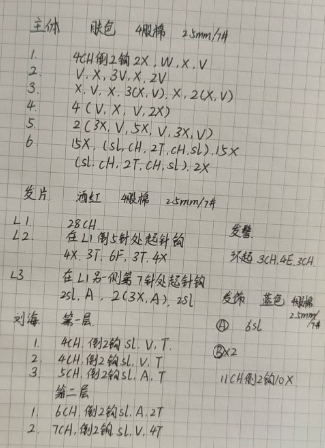 主体 肤色 4股棉 2.5mm/7#
1. 4CH倒2钩2X,W,X,V
2. V,X,3V,X,2V
3. X,V,X,3(X,V),X,2(X,V)
4. 4(V,X,V,2X)
5. 2(3X,V,5X,V,3X,V)
6 15X,(sl,CH,2T,CH,sl),15X
(sl,CH,2T,CH,sl),2X
发片 酒红 4股棉 2.5mm/7#
L1. 28CH
L2. 在L1倒5针处起针钩
4X,3T,6F,3T,4X
L3 在L1另一侧第7针处起针钩
2sl,A,2(3X,A),2sl
发髻
环起 3CH,4E,3CH
发饰 蓝色 4股棉
2.5mm/7#
Ⓐ 6sl
Ⓑ×2
11CH倒2钩10X
刘海 第一层
1. 4CH,倒2钩sl,V,T
2. 4CH,倒2钩sl,V,T
3. 5CH,倒2钩sl,A,T
第二层
1. 6CH,倒2钩sl,A,2T
2. 7CH,倒2钩sl,V,4T